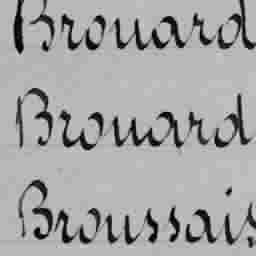 Brouard
Brouard
Broussais